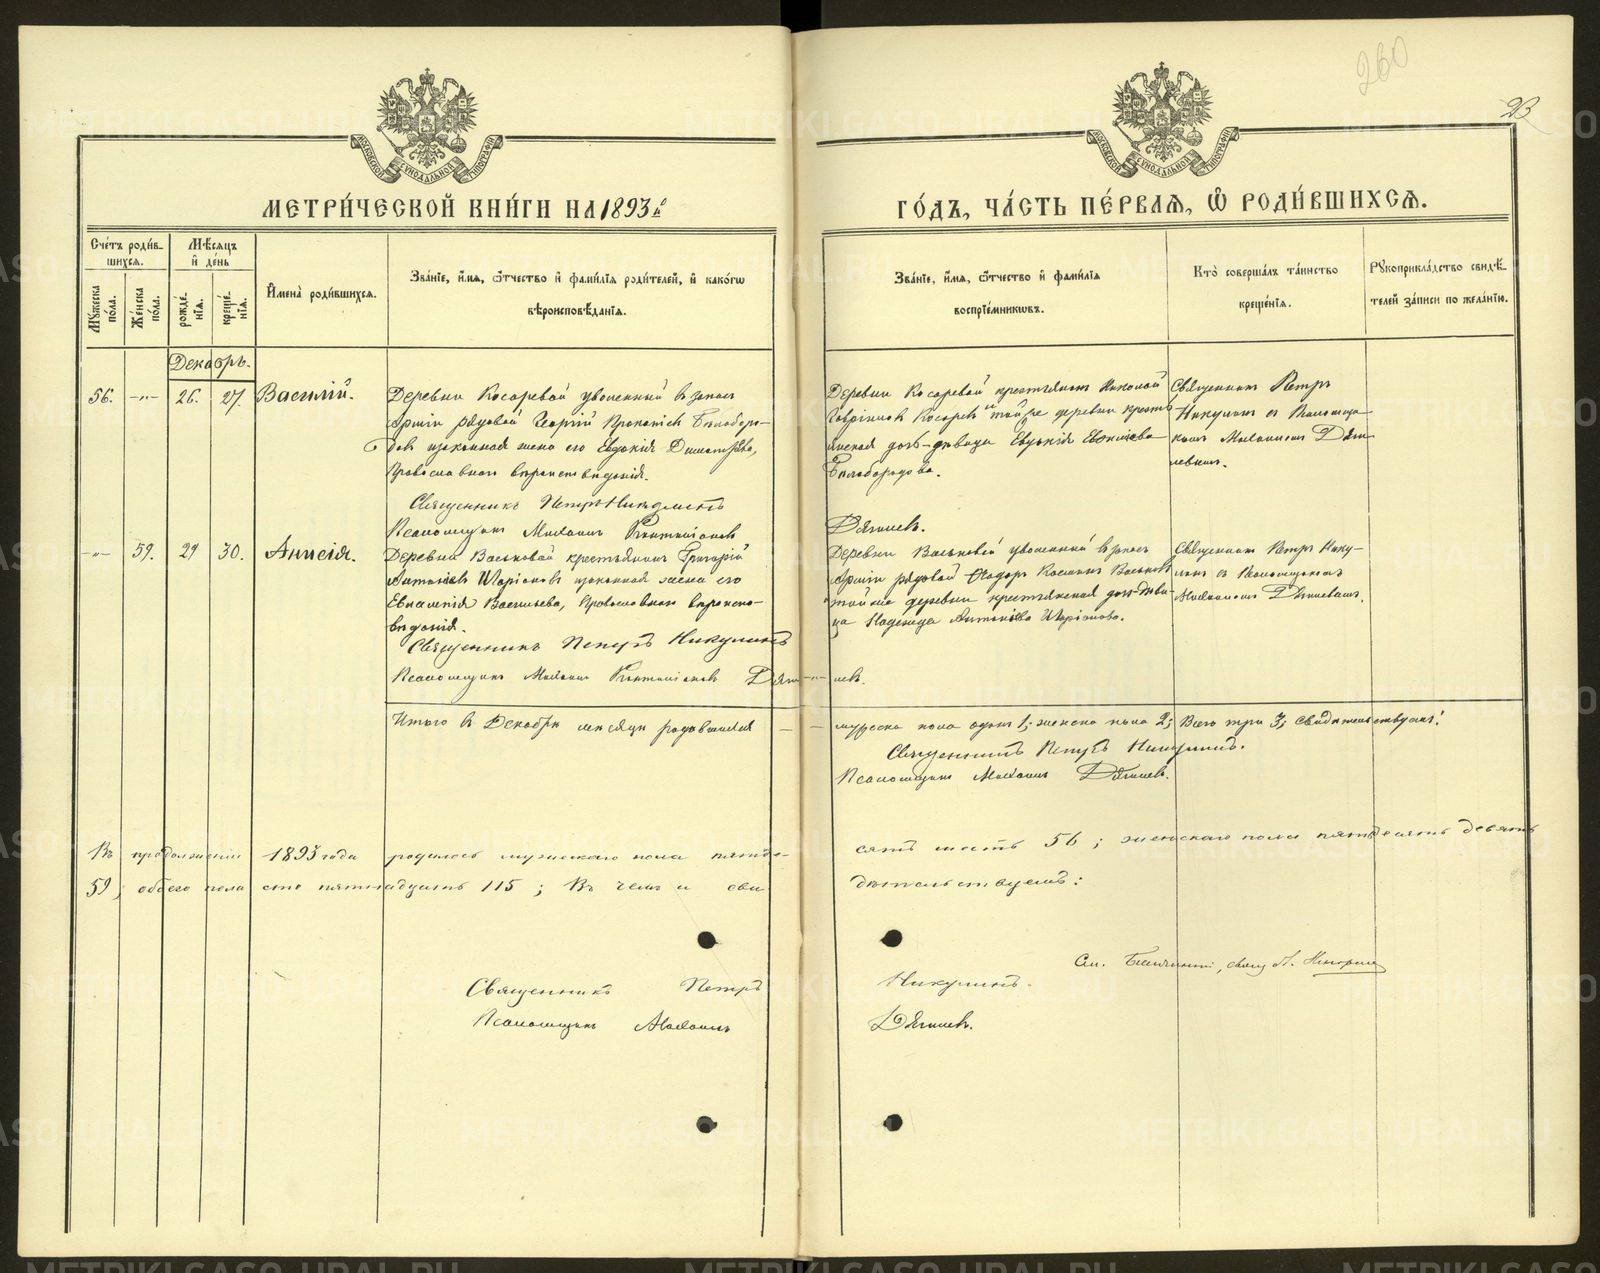 260
23
МОСКОВСКОЙ СѴНОДАЛЬНОЙ ТИПОГРАФІИ
МОСКОВСКОЙ СѴНОДАЛЬНОЙ ТИПОГРАФІИ
МЕТРИ́ЧЕСКОЙ КНИ́ГИ НА 1893й
ГО́ДЪ, ЧА́СТЬ ПЕ́РВАѦ, Ѡ҆ РОДИ́ВШИХСѦ.
Сче́тъ роди́в-
шихсѧ.
Мѣ́сѧцъ
и҆ де́нь
Мꙋ́жеска
по́ла.
Же́нска
по́ла.
рожде́-
нїѧ.
креще́-
нїѧ.
И҆мена̀ роди́вшихсѧ.
Зва́нїе, и҆́мѧ, ѻ҆́тчество и҆ фами́лїѧ роди́телей, и҆ како́гѡ
вѣроисповѣ́данїѧ.
Зва́нїе, и҆́мѧ, ѻ҆́тчество и҆ фами́лїѧ
воспрїе́мникѡвъ.
Кто̀ соверша́лъ та́инство
креще́нїѧ.
Рꙋкоприкла́дство свидѣ́-
телей за́писи по жела́нїю.
Декабрь.
56. —„— 26. 27. Василій.
Деревни Косаревой уволенный в запас
Арміи рядовой Георгій Прокопіев Белоборо-
дов и законная жена его Евдокія Димитріева,
Православнаго вероисповеданія.
Священникъ Петръ Никулинъ
Псаломщик Михаил
Деревни Косаревой крестьянин Николай
Гавриилов Косарев и тойже деревни кресть-
янская дочь-девица Евдокія
Белобородова.
Дягилев.
Священник Петр
Никулин с Псаломщи-
ком Михаилом Дяги-
левым.
—„— 59. 29 30. Анисія.
Деревни Васьковой крестьянин Григорій
Антоніев Иларіонов и законная жена его
Евлампія Васильева, Православнаго вероиспо-
веданія.
Священникъ Петръ Никулинъ
Псаломщик Михаил Дяги-
лев.
Деревни Васьковой уволенный в запас
Арміи рядовой Ѳеодор Васьков
тойже деревни крестьянская дочь-деви-
ца Надежда Антоніева Иларіонова.
Священник Петр Нику-
лин с Псаломщиком
Михаилом Дягилевым.
Итого в Декабре месяце родившихся
мужеска пола один 1; женска пола 2; Всего три 3; Свидетельствуем:
Священникъ Петръ Никулинъ.
Псаломщик Михаил Дягилев.
Въ продолженіи 1893 года родилось мужескаго пола пятьде-
сятъ шесть 56; женскаго пола пятьдесятъ девять
59; обоего пола сто пятнадцать 115; Въ чемъ и сви-
дѣтельствуемъ:
Священникъ Петръ Никулинъ.
Псаломщик Михаил Дягилев.